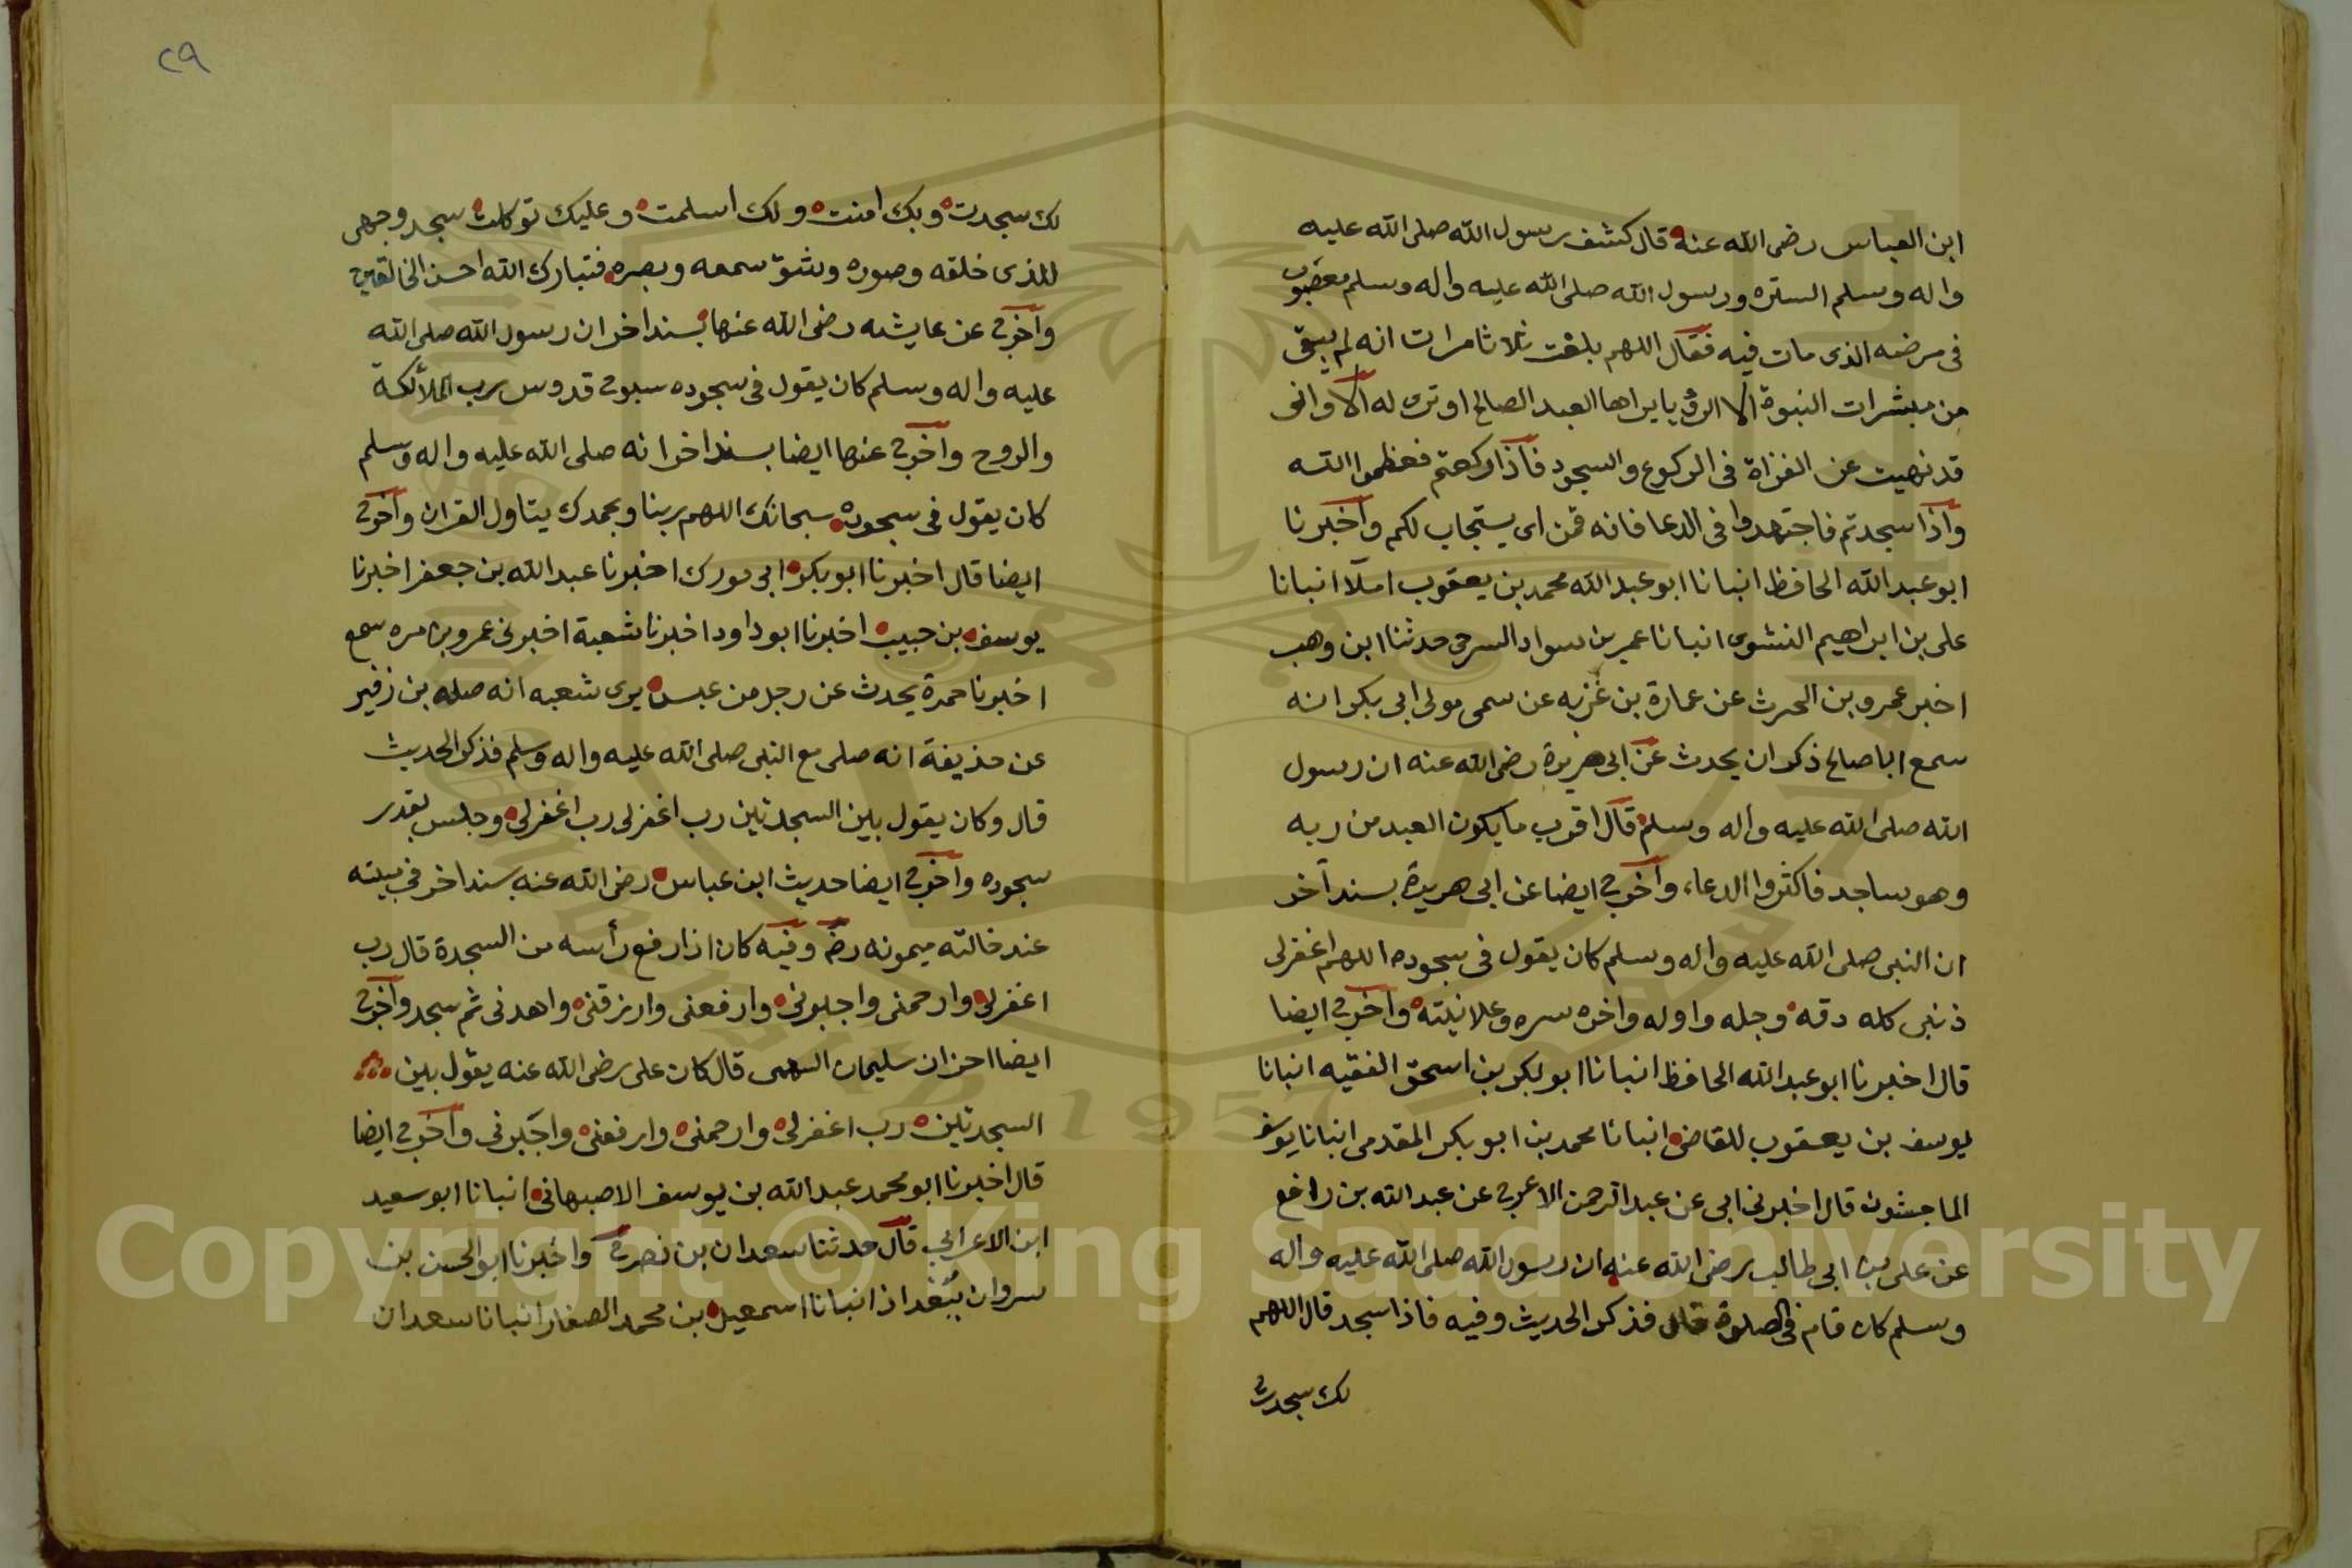 ابن العباس رضى الله عنه قال كشف رسول الله صلى الله عليه
واله وسلم الستره ورسول الله صلى الله عليه واله وسلم معضوب
فى مرضه الذى مات فيه فقال اللهم بلغت ثلاثا مرات انه لم يبقى
من مبشرات النبوة الا الرؤيا يراها العبد الصالح او ترى له الا وانى
قد نهيت عن القراة فى الركوع والسجود فاذا ركعتم فعظموا الله
واذا سجدتم فاجتهدوا فى الدعا فانه قمن اى يستجاب لكم واخبرنا
ابو عبد الله الحافظ انبانا ابو عبد الله محمد بن يعقوب املآ انبانا
على بن ابراهيم النشوى انبانا عمر بن سواد السرحى حدثنا ابن وهب
اخبر عمرو بن الحرث عن عمارة بن غزيه عن سمى مولى ابى بكر انه
سمع ابا صالح ذكر ان يحدث عن ابى هريرة رضى الله عنه ان رسول
الله صلى الله عليه واله وسلم قال اقرب ما يكون العبد من ربه
وهو ساجد فاكثروا الدعاء واخرج ايضا عن ابى هريرة بسند آخر
ان النبى صلى الله عليه واله وسلم كان يقول فى سجوده اللهم اغفر لى
ذنبى كله دقه وجله واوله واخره سره وعلانيته واخرج ايضا
قال اخبرنا ابو عبد الله الحافظ انبانا ابو بكر بن اسحق الفقيه انبانا
يوسف بن يعقوب للقاضى انبانا محمد بن ابو بكر المقدمى انبانا يوسف
الماجشون قال اخبرنى ابى عن عبد الرحمن الاعرج عن عبد الله بن رافع
عن على بن ابى طالب رضى الله عنه ان رسول الله صلى الله عليه واله
وسلم كان قام فى الصلوة قال فذكر الحديث وفيه فاذا سجد قال اللهم
لك سجدت
٢٩
لك سجدت وبك امنت ولك اسلمت وعليك توكلت سجد وجهى
للذى خلقه وصوره وشق سمعه وبصره فتبارك الله احسن الخالقين
واخرج عن عايشه رضى الله عنها بسند اخر ان رسول الله صلى الله
عليه واله وسلم كان يقول فى سجوده سبوح قدوس رب الملائكة
والروح واخرج عنها ايضا بسند اخر انه صلى الله عليه واله وسلم
كان يقول فى سجوده سبحانك اللهم ربنا وبحمدك يتاول القران واخرج
ايضا قال اخبرنا ابو بكر ابى فورك اخبرنا عبد الله بن جعفر اخبرنا
يوسف بن حبيب اخبرنا ابو داود اخبرنا شعبة اخبرنى عمرو بن مره سمع
اخبرنا حمزة يحدث عن رجل من عبس يرى شعبه انه صله بن زفير
عن حذيفة انه صلى مع النبى صلى الله عليه واله وسلم فذكر الحديث
قال وكان يقول بين السجدتين رب اغفر لى رب اغفر لى وجلس بقدر
سجوده واخرج ايضا حديث ابن عباس رضى الله عنه بسند اخر فى بيته
عند خالته ميمونه رض وفيه كان اذا رفع رأسه من السجدة قال رب
اغفر لى وارحمنى واجبرنى وارفعنى وارزقنى واهدنى ثم سجد واخرج
ايضا احزان سليمان السهمى قال كان على رضى الله عنه يقول بين
السجدتين رب اغفر لى وارحمنى وارفعنى واجبرنى واخرج ايضا
قال اخبرنا ابو محمد عبد الله بن يوسف الاصبهانى انبانا ابو سعيد
ابن الاعرابى قال حدثنا سعدان بن نصر ح واخبرنا ابو الحسن بن
سروان ببغداذ انبانا اسمعيل بن محمد الصفار انبانا سعدان
Copyright © King Saud University
1957